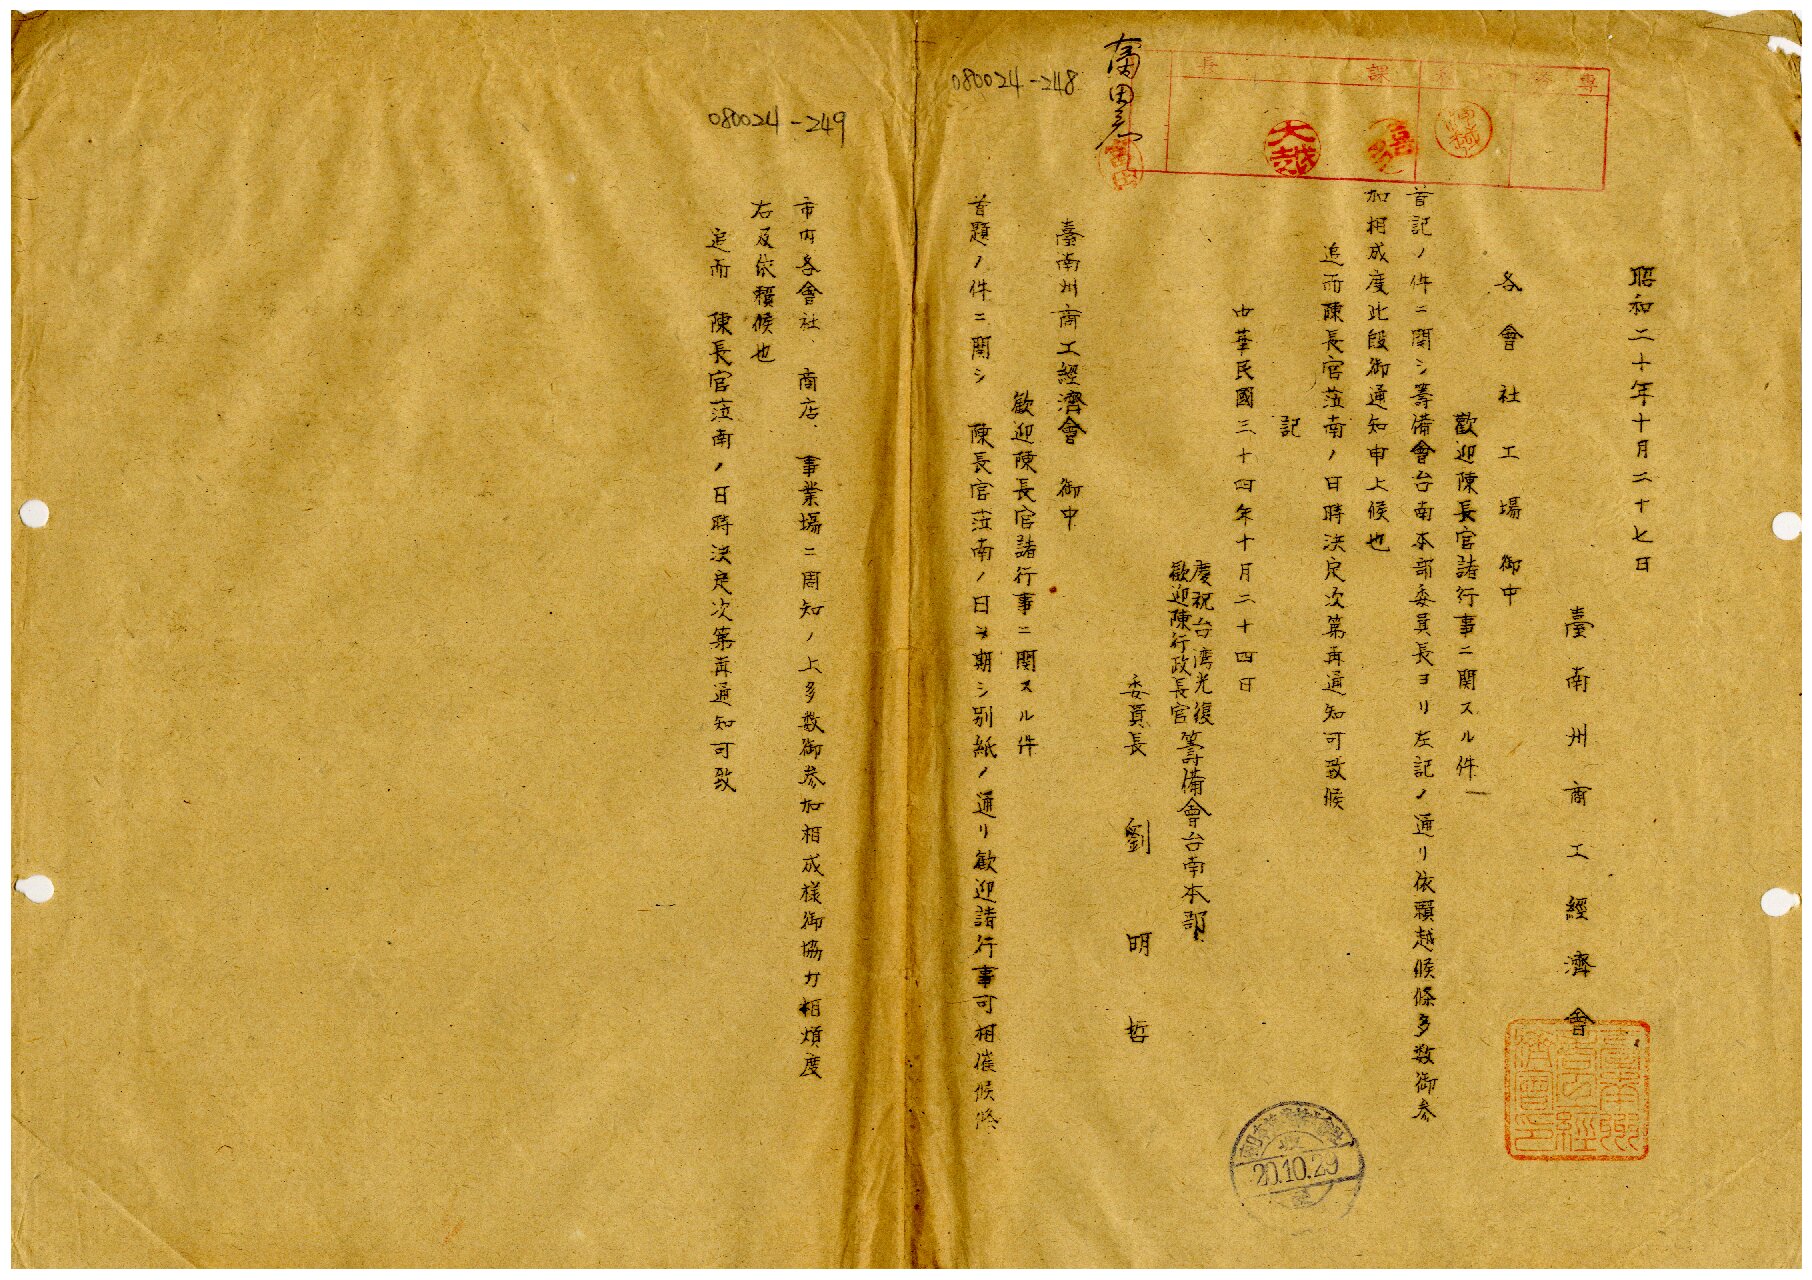 昭和二十年十月二十七日
臺南州商工經濟會
各會社工場御中
歡迎陳長官諸行事ニ関スル件
首記ノ件ニ関シ籌備會台南本部委員長ヨリ左記ノ通リ依頼越候條多数御参
加相成度此段御通知申上候也
追而陳長官蒞南ノ日時決定次第再通知可致候
記
中華民國三十四年十月二十四日
慶祝台湾光復
歡迎陳行政長官
籌備會台南本部
委員長 劉明哲
臺南州商工經濟會 御中
歡迎陳長官諸行事ニ関スル件
首題ノ件ニ関シ 陳長官蒞南ノ日ヲ期シ別紙ノ通リ歡迎諸行事可相催候條
市内各會社、商店、事業場ニ周知ノ上多数御参加相成様御協力相煩度
右及依頼候也
追而 陳長官蒞南ノ日時決定次第再通知可致
080024-248
080024-249
課
長
大越
喜多
20.10.29